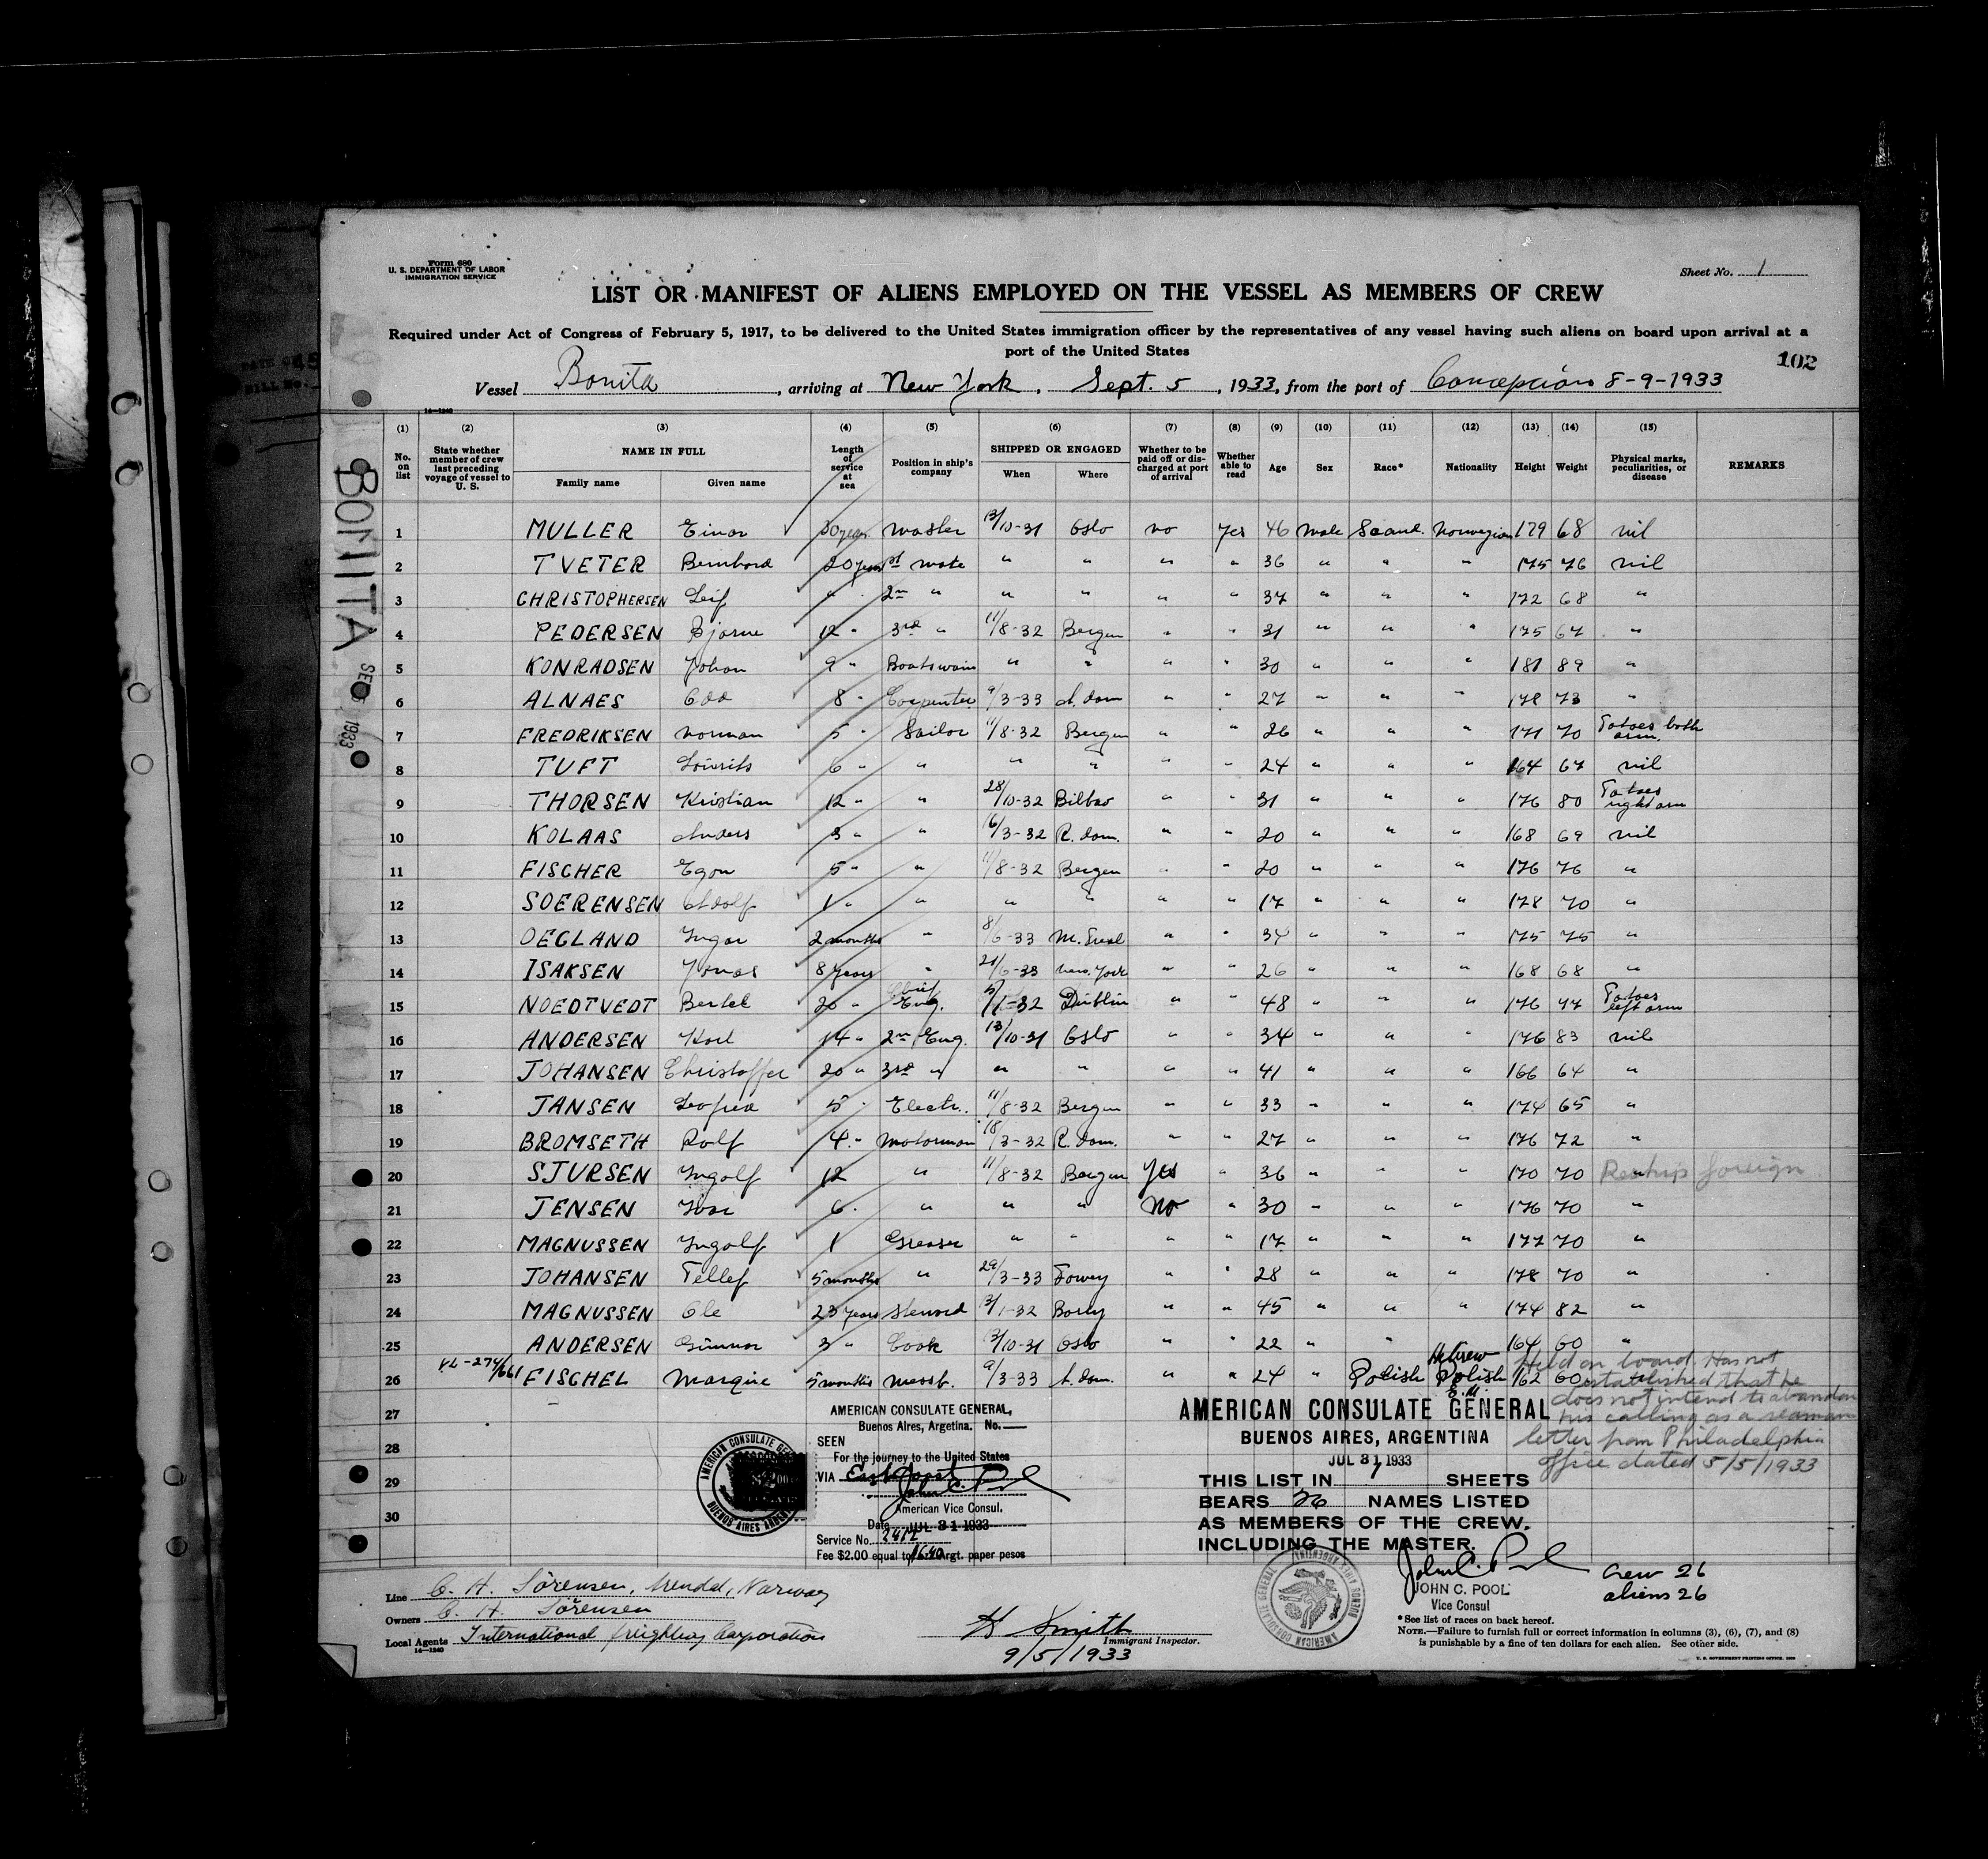 Form 680
U. S. DEPARTMENT OF LABOR
IMMIGRATION SERVICE
Sheet No. 1
LIST OR MANIFEST OF ALIENS EMPLOYED ON THE VESSEL AS MEMBERS OF CREW
Required under Act of Congress of February 5, 1917, to be delivered to the United States immigration officer by the representatives of any vessel having such aliens on board upon arrival at a
port of the United States
102
Vessel Bonita, arriving at New York, Sept. 5, 1933, from the port of Concepcion 8-9-1933
14—1240
(1) (2) (3) (4) (5) (6) (7) (8) (9) (10) (11) (12) (13) (14) (15)
No. on list
State whether member of crew last preceding voyage of vessel to U. S.
NAME IN FULL
Family name
Given name
Length of service at sea
Position in ship's company
SHIPPED OR ENGAGED
When
Where
Whether to be paid off or discharged at port of arrival
Whether able to read
Age
Sex
Race*
Nationality
Height
Weight
Physical marks, peculiarities, or disease
REMARKS
BONITA
SEP 5 1933
1 MULLER Einar 30 years Master 13/10-31 Oslo no Yes 46 Male Scand. Norwegian 179 68 nil
2 TVETER Bernhard 20 years 1st mate " " " " 36 " " " 175 76 nil
3 CHRISTOPHERSEN Leif " 2nd " " " " " 37 " " " 172 68 "
4 PEDERSEN Bjarne 12 " 3rd " 11/8-32 Bergen " " 31 " " " 175 67 "
5 KONRADSEN Johan 9 " Boatswain " " " " 30 " " " 181 89 "
6 ALNAES Odd 8 " Carpenter 9/3-33 A.dam " " 27 " " " 178 73 "
7 FREDRIKSEN Norman 5 " Sailor 11/8-32 Bergen " " 26 " " " 171 70 Tatoes both arm.
8 TUFT Lourits 6 " " " " " " 24 " " " 164 67 nil
9 THORSEN Kristian 12 " " 28/10-32 Bilbao " " 31 " " " 176 80 Tatoes right arm
10 KOLAAS Anders 3 " " 16/3-32 R.dam. " " 20 " " " 168 69 nil
11 FISCHER Egon 5 " " 11/8-32 Bergen " " 20 " " " 176 76 "
12 SOERENSEN Adolf 1 " " " " " " 17 " " " 178 70 "
13 OEGLAND Ingar 2 months " 8/6-33 M. Treal " " 34 " " " 175 75 "
14 ISAKSEN Jonas 8 years " 21/6-33 New York " " 26 " " " 168 68 "
15 NOEDTVEDT Bertel 20 " Chief Eng. 5/1-32 Dublin " " 48 " " " 176 77 Tatoes left arm
16 ANDERSEN Karl 14 " 2nd Eng. 13/10-31 Oslo " " 34 " " " 176 83 nil
17 JOHANSEN Christoffer 20 " 3rd " " " " " 41 " " " 166 64 "
18 JANSEN 5 " Electr. 11/8-32 Bergen " " 33 " " " 174 65 "
19 BROMSETH Rolf 4 " Motorman 18/3-32 R.dam. " " 27 " " " 176 72 "
20 SJURSEN Ingolf 12 " 11/8-32 Bergen Yes " 36 " " " 170 70 " Reship foreign
21 JENSEN Ivar 6 " " " " No " 30 " " " 176 70 "
22 MAGNUSSEN Ingolf 1 Greaser " " " " 17 " " " 177 70 "
23 JOHANSEN Tellef 5 months " 29/3-33 Fowey " " 28 " " " 178 70 "
24 MAGNUSSEN Ole 23 years Steward 13/1-32 Barry " " 45 " " " 174 82 "
25 ANDERSEN Gunnar 3 " Cook 13/10-31 Oslo " " 22 " " 164 60 "
26 FISCHEL Marquie 5 months messb. 9/3-33 A.dam. " " 24 " Polish Hebrew Polish 162 60
Held on board. Has not
established that he
does not intend to abandon
his calling as a seaman
letter from Philadelphia
office dated 5/5/1933
27
28
29
30
AMERICAN CONSULATE GENERAL,
Buenos Aires, Argetina. No.
SEEN
For the journey to the United States
VIA East Coast
John C. Pool
American Vice Consul.
Date JUL 31 1933
Service No. 2472
Fee $2.00 equal to Argt. paper pesos
AMERICAN CONSULATE GENERAL
BUENOS AIRES, ARGENTINA
JUL 31 1933
THIS LIST IN 1 SHEETS
BEARS 26 NAMES LISTED
AS MEMBERS OF THE CREW,
INCLUDING THE MASTER.
John C. Pool
JOHN C. POOL
Vice Consul
crew 26
aliens 26
Line C. H. Sörensen, Arendal, Norway
Owners C. H. Sörensen
Local Agents International freighting Corporation
14—1240
H Smith
Immigrant Inspector.
9/5/1933
*See list of races on back hereof.
NOTE.—Failure to furnish full or correct information in columns (3), (6), (7), and (8)
is punishable by a fine of ten dollars for each alien. See other side.
U. S. GOVERNMENT PRINTING OFFICE